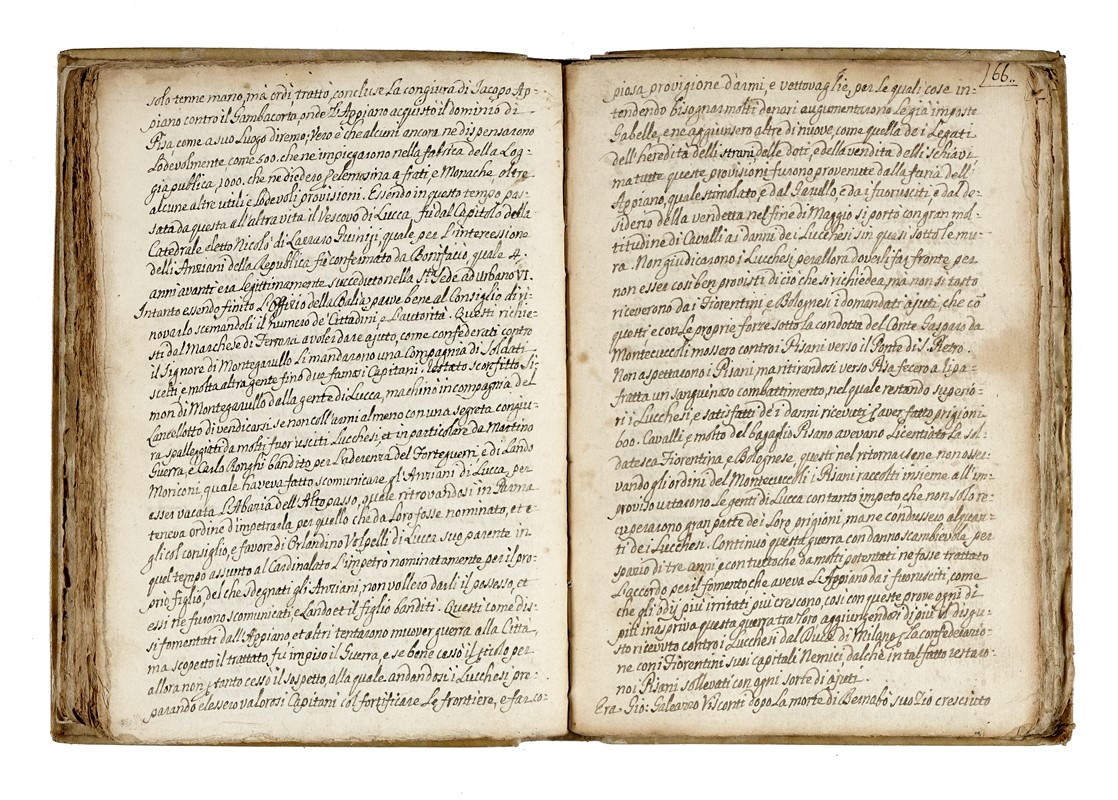 solo tenne mano, ma ordì, trattò, concluse La congiura di Jacopo Ap=
piano contro il Gambacorta, onde l'Appiano acquistò il dominio di
Pisa come a suo Luogo diremo; Vero è che alcuni ancora ne dispensarono
Lodevolmente, come 500. che ne impiegarono nella fabrica della Log=
gia publica, 1000. che ne diedero p elemosina a frati, e Monache oltre
alcune altre utili, e Lodevoli provisioni. Essendo in questo tempo pas=
sata da questa all'altra vita il Vescovo di Lucca, fù dal Capitolo della
Catedrale eletto Nicolò di Lazzaro Guinigi, quale per L'intercessione
delli Anziani della Republica fù confermato da Bonifacio, quale 4.
anni avanti era Legittimamente succeduto nella S.ta Sede ad Urbano VI.
Intanto essendo finito L'offizio della Balia, parve bene al Consiglio di ri=
novarlo scemandoli il numero de' Cittadini, e L'autorità. Questi richie=
sti dal Marchese di Ferrara a voler dare ajuto, come confederati contro
il Signore di Montegarullo Li mandarono una Compagnia di Soldati
scelti, e molta altra gente fino due famosi Capitani. Restato sconfitto Si=
mon di Montegarullo dalla gente di Lucca, machinò in compagnia del
Lancelotto di vendicarsi se non coll'armi almeno con una segreta congiu=
ra spalleggiati da molti fuorusciti Lucchesi, et in particolare da Martino
Guerra, e Carlo Ronghi bandito per L'aderenza del Forteguerri, e di Lando
Moriconi, quale haveva fatto scomunicare gl'Anziani di Lucca, per
esser vacata L'Abazia dell'Alto passo, quale ritrovandosi in Roma
teneva ordine d'impetrarla per quello che da Loro fosse nominato, et e=
gli col consiglio, e favore di Orlandino Volpelli di Lucca suo parente in
quel tempo assunto al Cardinalato L'impetrò nominatamente per il pro=
prio figlio, del che sdegnati gli Anziani, non vollero darli il possesso, et
essi ne furono scomunicati, e Lando et il figlio banditi. Questi come dis=
si fomentati dall'Appiano et altri tentarono muover guerra alla Città,
ma scoperto il trattato fu impiso il Guerra, e se bene cessò il pericolo per
allora non p tanto cessò il sospetto, alla quale andandosi i Lucchesi pre=
parando elessero valorosi Capitani col fortificare Le frontiere, e far co=
166..
piosa provigione d'armi, e vettovaglie, per le quali cose in=
tendendo bisognar molti denari augumentarono Le già imposte
Gabelle, e ne aggiunsero altre di nuove, come quella de i Legati
dell'heredità delli strani, delle doti, e della vendita delli Schiavi,
ma tutte queste provisioni furono provenute dalla furia dell'
Appiano, quale stimolato, e dal Garullo, e da i fuorusciti, e dal de=
siderio della vendetta nel fine di Maggio si portò con gran mol=
titudine di Cavalli a i danni de i Lucchesi sin quasi sotto le mu=
ra. Non giudicarono i Lucchesi per allora doverli far fronte per
non esser così ben provisti di ciò che si richiedea, mà non sì tosto
riceverono da i Fiorentini, e Bolognesi i domandati ajuti, che cõ
questi, e con Le proprie forze sotto la condotta del Conte Gasparo da
Montecuccoli mossero contro i Pisani verso il Ponte di S. Pietro.
Non aspettarono i Pisani, ma ritirandosi verso Pisa fecero a Ripa=
fratta un sanguinoso combattimento, nel quale restando superio=
ri i Lucchesi, e satisfatti de i danni ricevuti p aver fatto prigioni
600. Cavalli, e molto del bagaglio Pisano avevano Licentiato La sol=
datesca Fiorentina, e Bolognese, questi nel ritornarsene non osser=
vando gli ordini del Montecuccoli i Pisani raccolti insieme all'im=
proviso urtarono Le genti di Lucca con tanto impeto che non solo re=
cuperarono gran parte de i Loro prigioni, ma ne condussero alquan=
ti de i Lucchesi. Continuò questa guerra con danno scambievole per
spazio di tre anni, e con tutto che da molti potentati ne fosse trattato
L'accordo per il fomento che aveva L'Appiano da i fuorusciti, come
che gli odij più irritati più crescono, così con queste prove ogni dì
più inaspriva questa guerra tra loro aggiungendosi di più il disgu=
sto ricevuto contro i Lucchesi dal Duca di Milano p La confederazio=
ne con i Fiorentini suoi capitali Nemici dal chè in tal fatto restaro=
no i Pisani sollevati con ogni sorte di ajuti.
Era Gio: Galeazzo Visconti dopo La morte di Bernabò suo Zio cresciuto